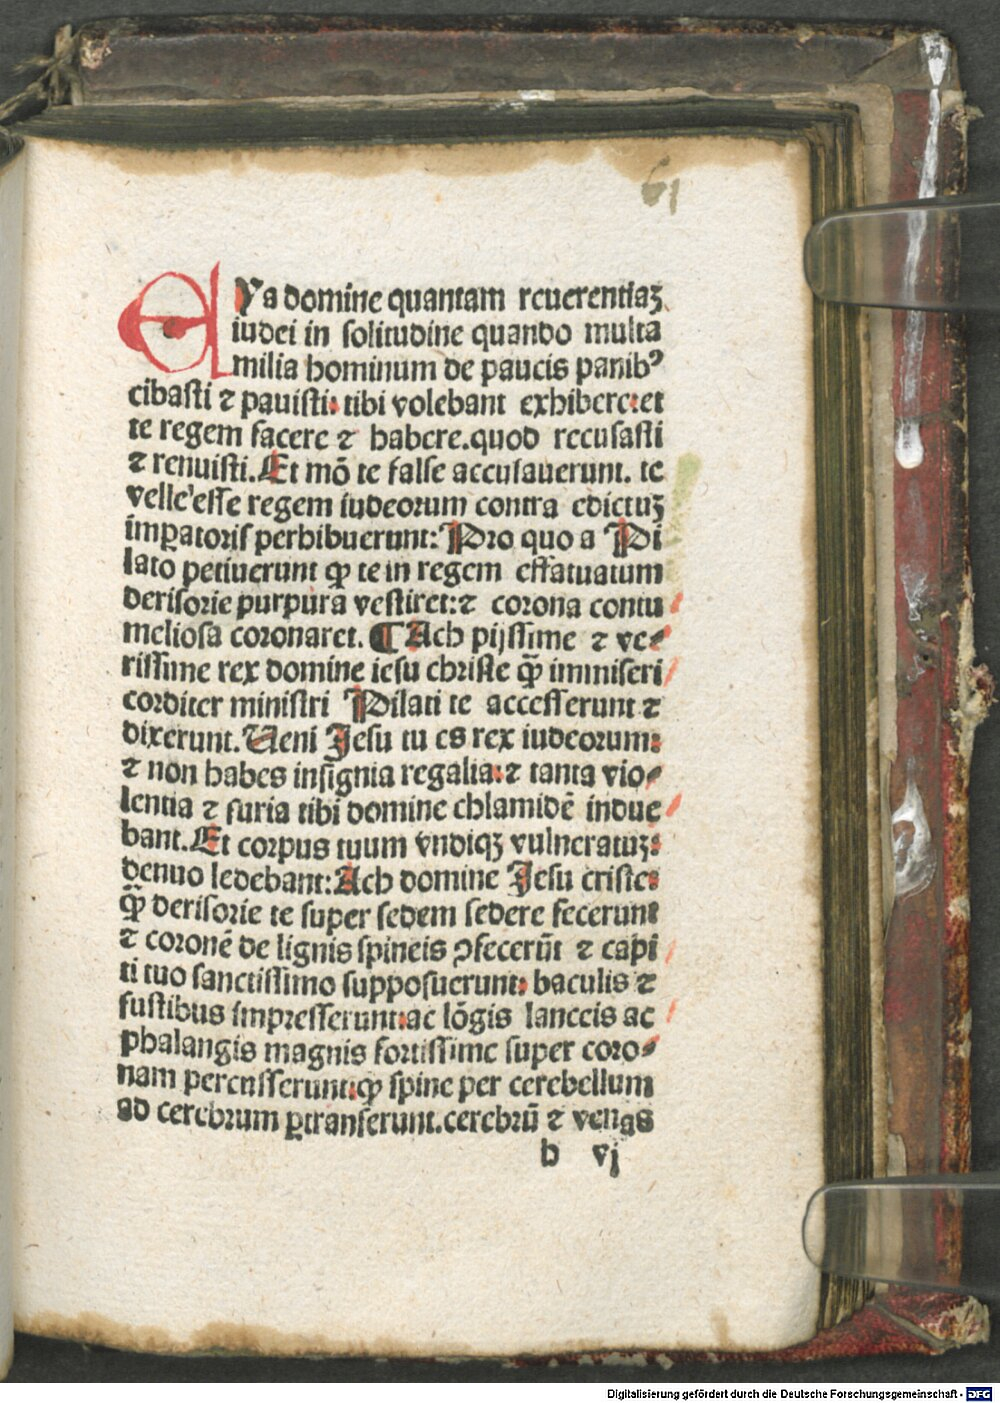 61
EYa domine quantam reuerentiaꝫ
iudei in solitudine quando multa
milia hominum de paucis panibꝰ
cibasti ⁊ pauisti: tibi volebant exhibere: et
te regem facere ⁊ habere. quod recusasti
⁊ renuisti. Et mō te false accusauerunt. te
velle esse regem iudeorum contra edictuꝫ
imꝑatoris perhibuerunt: Pro quo a Pi
lato petiuerunt ꝙ te in regem effatuatum
derisorie purpura vestiret: ⁊ corona contu
meliosa coronaret. ¶ Ach pijssime ⁊ ve⸗
rissime rex domine iesu christe ꝙ̃ immiseri
corditer ministri Pilati te accesserunt ⁊
dixerunt. Ueni Jesu tu es rex iudeorum:
⁊ non habes insignia regalia: ⁊ tanta vio⸗
lentia ⁊ furia tibi domine chlamidē indue
bant. Et corpus tuum vndiqꝫ vulneratuꝫ:
denuo ledebant: Ach domine Jesu criste:
ꝙ̃ derisorie te super sedem sedere fecerunt
⁊ coronē de lignis spineis ꝯfecerūt ⁊ capi
ti tuo sanctissimo supposuerunt: baculis ⁊
fustibus impresserunt: ac lōgis lanceis ac
phalangis magnis fortissime super coro⸗
nam percusserunt: ꝙ spine per cerebellum
ad cerebrum ꝑtranserunt. cerebrū ⁊ venas
b vj
Digitalisierung gefördert durch die Deutsche Forschungsgemeinschaft - DFG